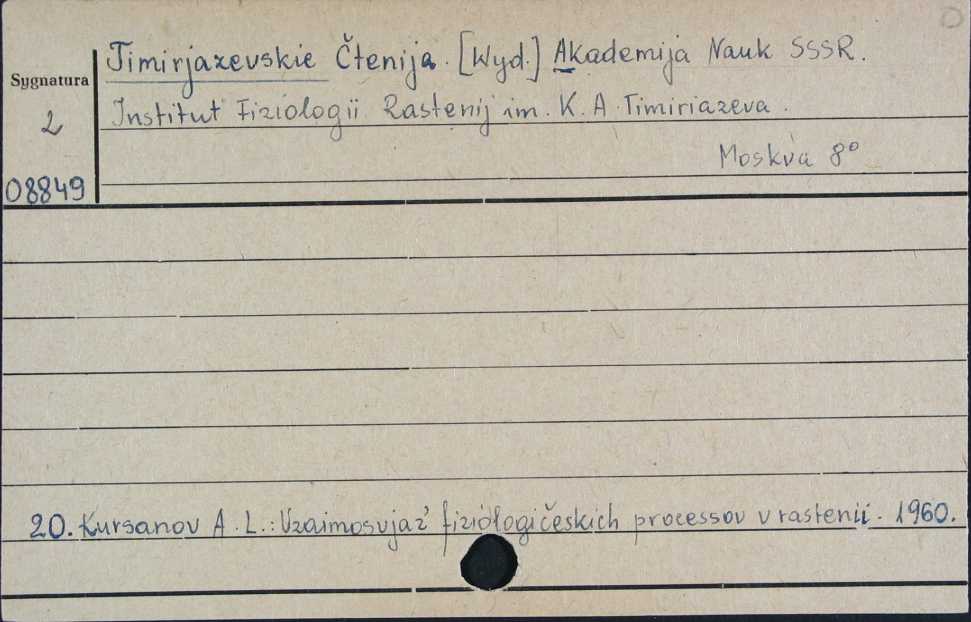 Timirjazevskie Čtenija. [Wyd.] Akademija Nauk SSSR.
Sygnatura
Institut Fiziologii Rastenij im. K. A. Timiriazeva.
2
Moskva 8°
08849
20. Kursanov A. L.: Vzaimosvjaź fiziologičeskich processov v rastenii. 1960.